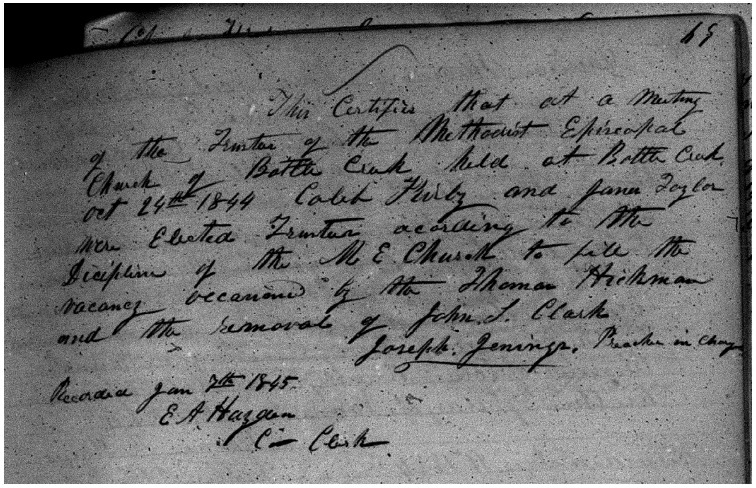 69
This Certifies that at a Meeting
of the Trustees of the Methodist Episcopal
Church of Battle Creek held at Battle Creek
Oct 24th 1844 Caleb Kirby and James Taylor
were Elected Trustees acording to the
Dicipline of the M E. Church to fill the
vacancy occasioned by the Thomas Hickman
and the removal of John. S. Clark
Joseph. Jenings. Preacher in Charge
Recorded Jan 7th 1845.
E. A. Hayden
Co Clerk